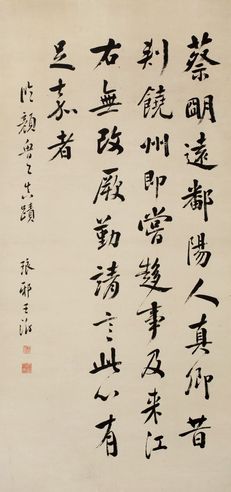 蔡明遠鄱陽人真卿昔
刺饒州即嘗趍事及来江
右無改厥勤請言此心有
足嘉者
臨顏魯公真蹟 琅邪王澍